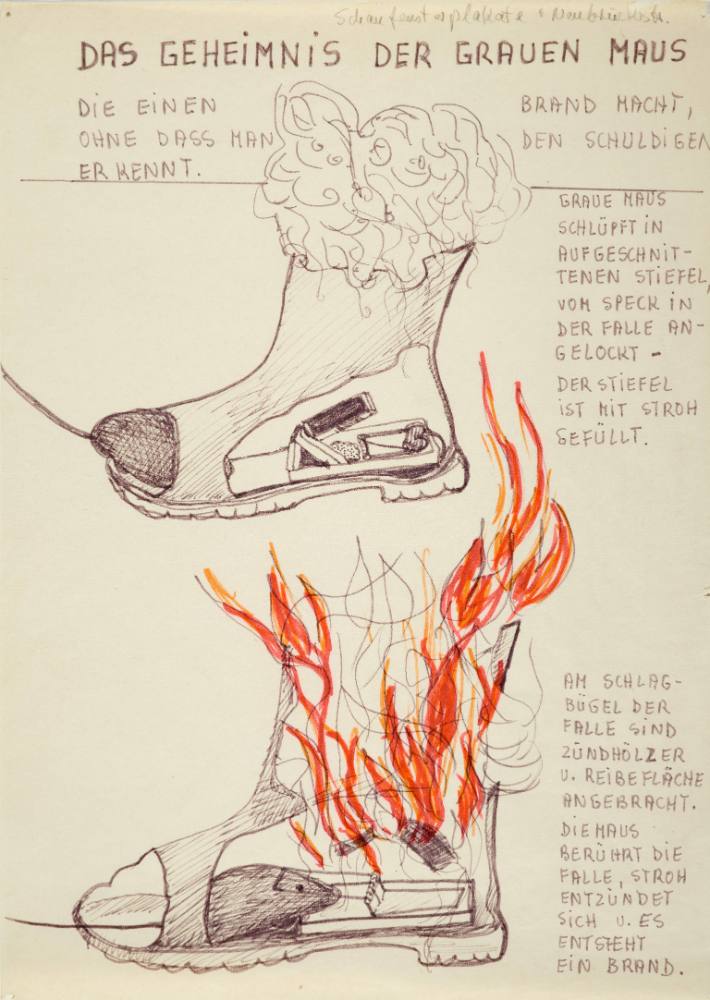 Schaufensterplakate
DAS GEHEIMNIS DER GRAUEN MAUS
DIE EINEN BRAND MACHT,
OHNE DASS MAN DEN SCHULDIGEN
ERKENNT.
GRAUE MAUS
SCHLÜPFT IN
AUFGESCHNIT-
TENEN STIEFEL,
VOM SPECK IN
DER FALLE AN-
GELOCKT -
DER STIEFEL
IST MIT STROH
GEFÜLLT.
AM SCHLAG-
BÜGEL DER
FALLE SIND
ZÜNDHÖLZER
U. REIBEFLÄCHE
ANGEBRACHT.
DIE MAUS
BERÜHRT DIE
FALLE, STROH
ENTZÜNDET
SICH U. ES
ENTSTEHT
EIN BRAND.